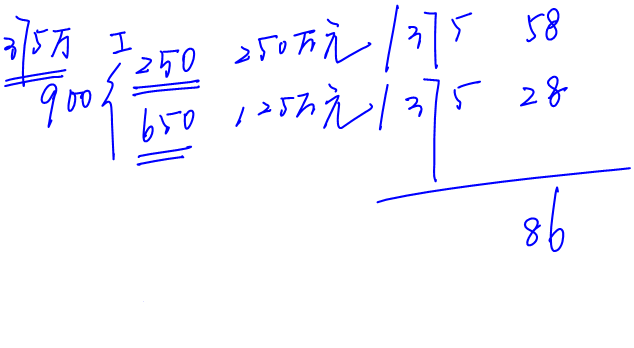 375万 I 250 250万元 / 375 58
900 { 650 125万元 / 375 28
86